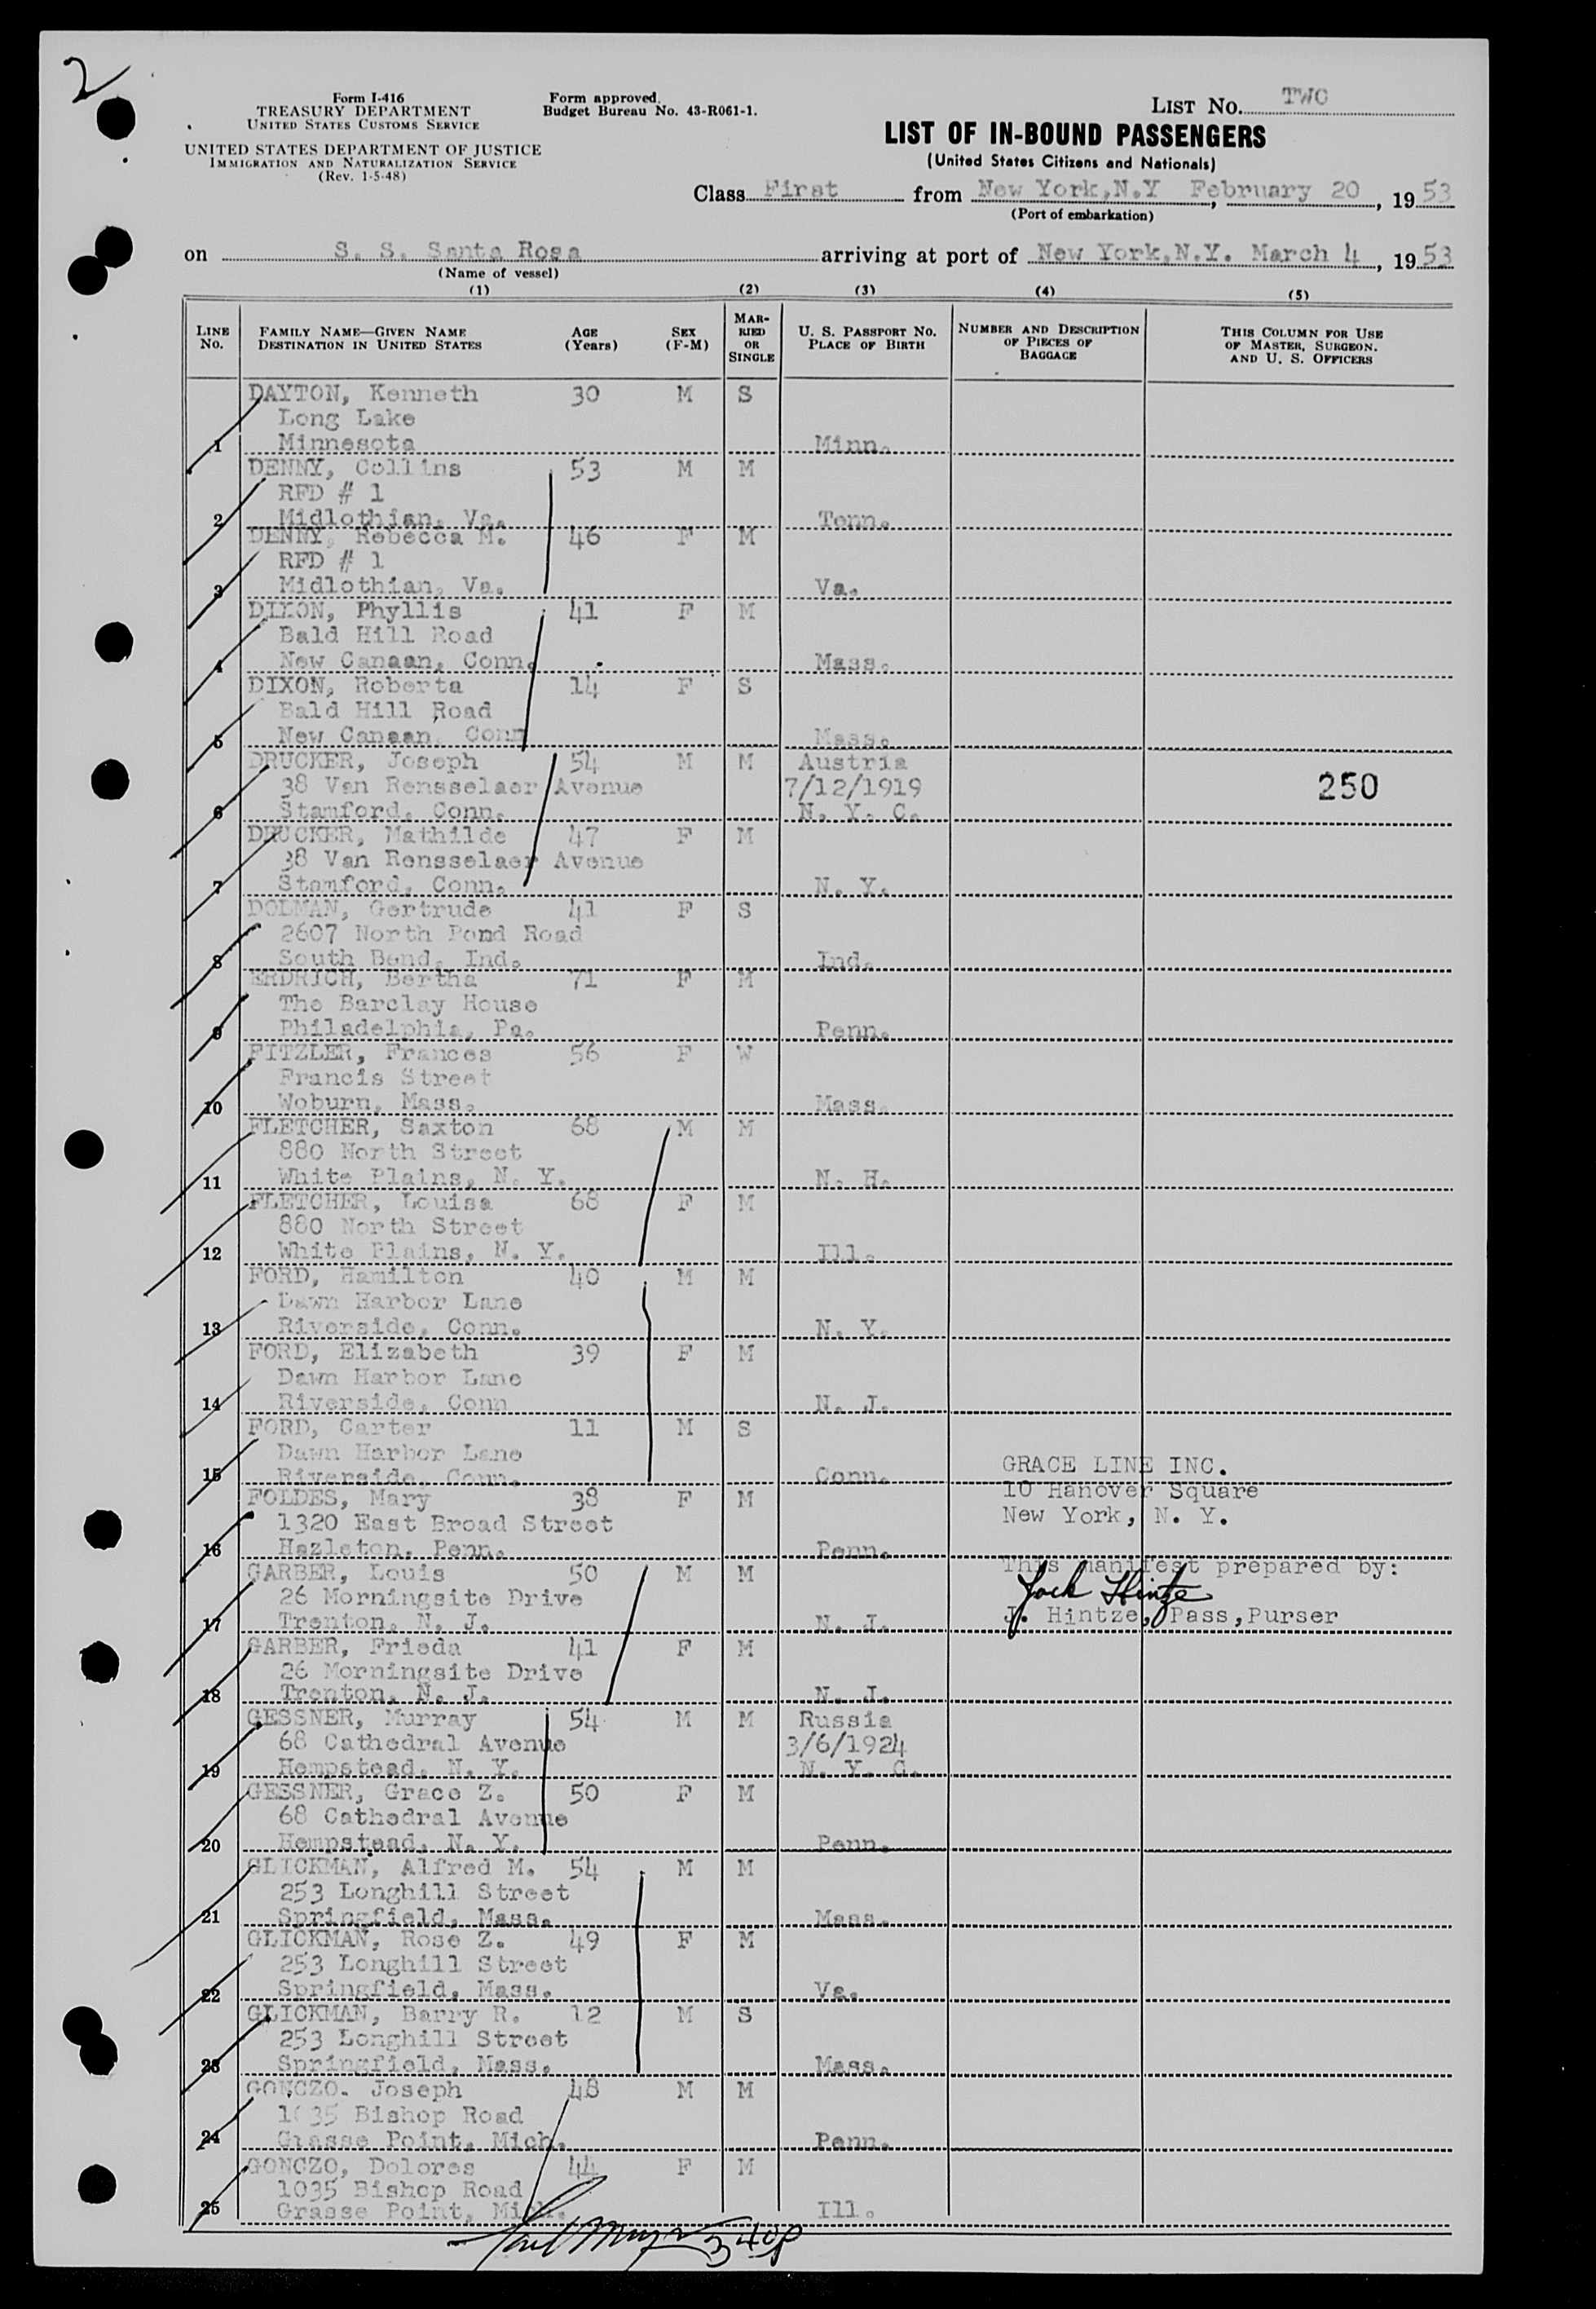 2
Form I-416
TREASURY DEPARTMENT
UNITED STATES CUSTOMS SERVICE
UNITED STATES DEPARTMENT OF JUSTICE
IMMIGRATION AND NATURALIZATION SERVICE
(Rev. 1-5-48)
Form approved.
Budget Bureau No. 43-R061-1.
LIST No. TWO
LIST OF IN-BOUND PASSENGERS
(United States Citizens and Nationals)
Class First from New York, N.Y February 20, 1953
(Port of embarkation)
on S. S. Santa Rosa arriving at port of New York, N.Y. March 4, 1953
(Name of vessel)
(1) (2) (3) (4) (5)
LINE No.
FAMILY NAME—GIVEN NAME
DESTINATION IN UNITED STATES
AGE (Years)
SEX (F-M)
MARRIED OR SINGLE
U. S. PASSPORT NO.
PLACE OF BIRTH
NUMBER AND DESCRIPTION OF PIECES OF BAGGAGE
THIS COLUMN FOR USE OF MASTER, SURGEON, AND U. S. OFFICERS
DAYTON, Kenneth 30 M S
Long Lake
1 Minnesota Minn.
DENNY, Collins 53 M M
RFD # 1
2 Midlothian, Va. Tenn.
DENNY, Rebecca M. 46 F M
RFD # 1
3 Midlothian, Va. Va.
DIXON, Phyllis 41 F M
Bald Hill Road
4 New Canaan, Conn. Mass.
DIXON, Roberta 14 F S
Bald Hill Road
5 New Canaan, Conn Mass.
DRUCKER, Joseph 54 M M Austria
38 Van Rensselaer Avenue 7/12/1919 250
6 Stamford, Conn. N. Y. C.
DRUCKER, Mathilde 47 F M
38 Van Rensselaer Avenue
7 Stamford, Conn. N. Y.
DOLMAN, Gertrude 41 F S
2607 North Pond Road
8 South Bend, Ind. Ind.
ERDRICH, Bertha 71 F M
The Barclay House
9 Philadelphia, Pa. Penn.
FITZLER, Frances 56 F W
Francis Street
10 Woburn, Mass. Mass.
FLETCHER, Saxton 68 M M
880 North Street
11 White Plains, N. Y. N. H.
FLETCHER, Louisa 68 F M
880 North Street
12 White Plains, N. Y. Ill.
FORD, Hamilton 40 M M
Dawn Harbor Lane
13 Riverside, Conn. N. Y.
FORD, Elizabeth 39 F M
Dawn Harbor Lane
14 Riverside, Conn N. J.
FORD, Carter 11 M S
Dawn Harbor Lane
15 Riverside, Conn. Conn.
GRACE LINE INC.
10 Hanover Square
New York, N. Y.
FOLDES, Mary 38 F M
1320 East Broad Street
16 Hazleton, Penn. Penn.
This manifest prepared by:
Jack Hintze
J. Hintze, Pass, Purser
GARBER, Louis 50 M M
26 Morningsite Drive
17 Trenton, N. J. N. J.
GARBER, Frieda 41 F M
26 Morningsite Drive
18 Trenton, N. J. N. J.
GESSNER, Murray 54 M M Russia
68 Cathedral Avenue 3/6/1924
19 Hempstead, N. Y. N. Y. C.
GESSNER, Grace Z. 50 F M
68 Cathedral Avenue
20 Hempstead, N. Y. Penn.
GLICKMAN, Alfred M. 54 M M
253 Longhill Street
21 Springfield, Mass. Mass.
GLICKMAN, Rose Z. 49 F M
253 Longhill Street
22 Springfield, Mass. Va.
GLICKMAN, Barry R. 12 M S
253 Longhill Street
23 Springfield, Mass. Mass.
GONCZO. Joseph 48 M M
1035 Bishop Road
24 Grasse Point, Mich. Penn.
GONCZO, Dolores 44 F M
1035 Bishop Road
25 Grasse Point, Mich. Ill.